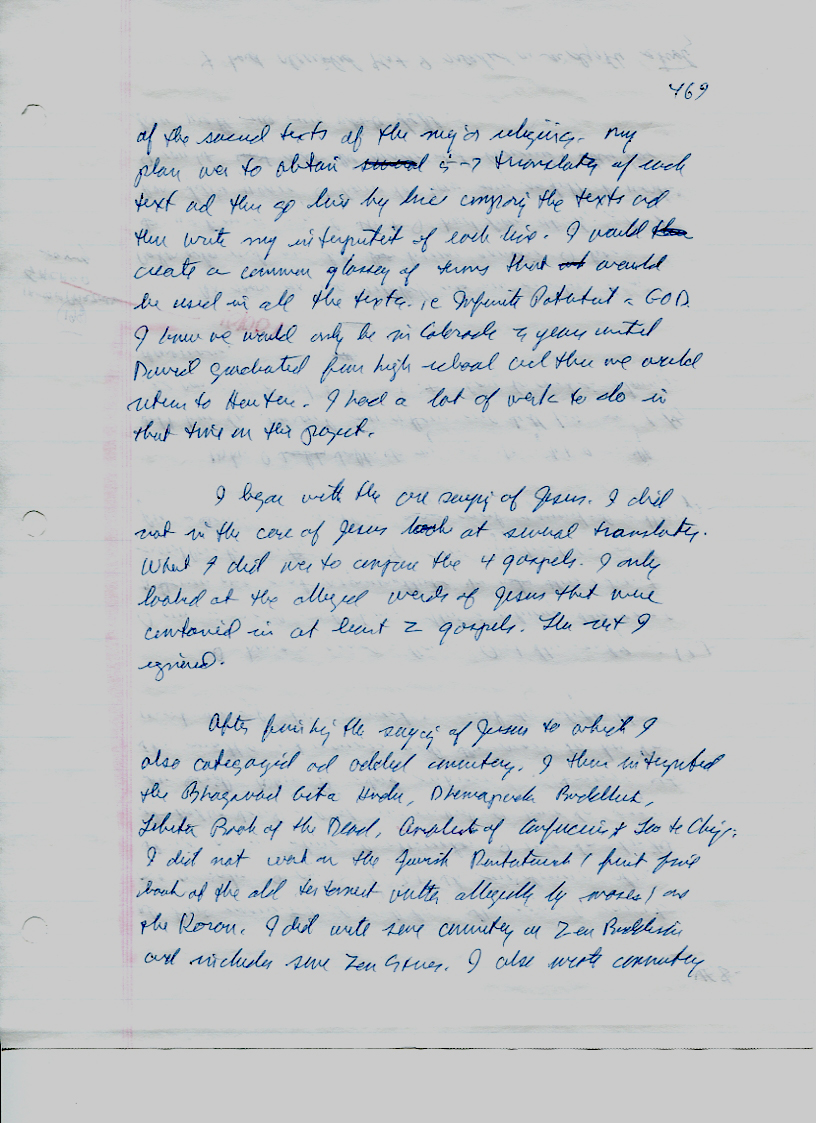 469
of the sacred texts of the major religions. My
plan was to obtain several 5-7 translates of each
text ad then go line by line comparing the texts ad
then write my interputet of each line. I would the
create a common glossary of terms that would
be used in all the texts. ie Infinite Potential = GOD.
I knew we would only be in Colorado 2 years until
David graduated from high school and then we would
return to Houston. I had a lot of work to do in
that time on this project.
I began with the core sayings of Jesus. I did
not in the case of Jesus look at several translates.
What I did was to compare the 4 gospels. I only
looked at the alleged words of Jesus that were
contained in at least 2 gospels. The rest I
ignored.
After finishing the sayings of Jesus to which I
also categorized ad added commentary. I then interputed
the Bhagavad Gita Hindu, Dhamapada Buddhist,
Tibetan Book of the Dead, Analects of Confucius & Tao te Ching.
I did not work on the Jewish Pentateuch (first five
book of the old testament written allegedly by moses) or
the Koran. I did write some commentary on Zen Buddhism
and includes some Zen Stories. I also wrote commentary